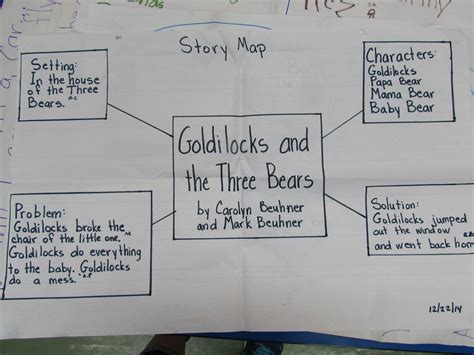 Story Map
Setting:
In the house
of the Three
Bears.
Characters:
Goldilocks
Papa Bear
Mama Bear
Baby Bear
Goldilocks and
the Three Bears
by Carolyn Beuhner
and Mark Beuhner
Problem:
Goldilocks broke the
chair of the little one.
Goldilocks do everything
to the baby. Goldilocks
do a mess.
Solution:
Goldilocks jumped
out the window
and went back hom
12/22/14